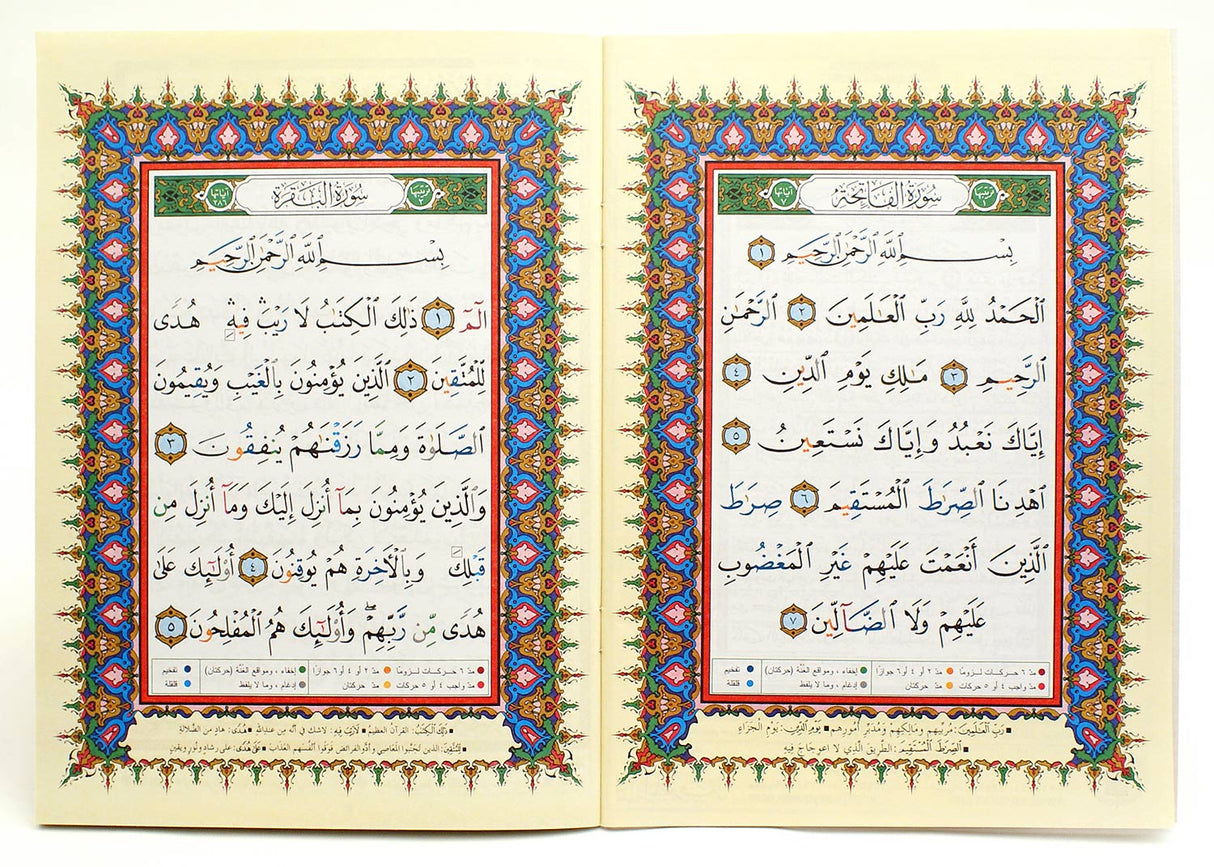 ترتيبها ١ سُورَةُ الفَاتِحَة آياتها ٧
بِسۡمِ ٱللَّهِ ٱلرَّحۡمَٰنِ ٱلرَّحِيمِ ١
ٱلۡحَمۡدُ لِلَّهِ رَبِّ ٱلۡعَٰلَمِينَ ٢ ٱلرَّحۡمَٰنِ
ٱلرَّحِيمِ ٣ مَٰلِكِ يَوۡمِ ٱلدِّينِ ٤
إِيَّاكَ نَعۡبُدُ وَإِيَّاكَ نَسۡتَعِينُ ٥
ٱهۡدِنَا ٱلصِّرَٰطَ ٱلۡمُسۡتَقِيمَ ٦ صِرَٰطَ
ٱلَّذِينَ أَنۡعَمۡتَ عَلَيۡهِمۡ غَيۡرِ ٱلۡمَغۡضُوبِ
عَلَيۡهِمۡ وَلَا ٱلضَّآلِّينَ ٧
مدّ ٦ حركات لزومًا مدّ ٢ أو ٤ أو ٦ جوازًا إخفاء، ومواقع الغُنَّة (حركتان) تفخيم
مدّ واجب ٤ أو ٥ حركات مدّ حركتان إدغام، وما لا يلفظ قلقلة
رَبِّ ٱلۡعَٰلَمِينَ: مُرَبِّيهِم ومَالِكِهِم ومُدَبِّرِ أُمورِهم يَوۡمِ ٱلدِّينِ: يَوْمِ الْجَزَاءِ
ٱلصِّرَٰطَ ٱلۡمُسۡتَقِيمَ: الطَّرِيقَ الَّذِي لا اعوِجَاجَ فِيهِ
ترتيبها ٢ سُورَةُ البَقَرَة آياتها ٢٨٦
بِسۡمِ ٱللَّهِ ٱلرَّحۡمَٰنِ ٱلرَّحِيمِ
الٓمٓ ١ ذَٰلِكَ ٱلۡكِتَٰبُ لَا رَيۡبَۛ فِيهِۛ هُدٗى
لِّلۡمُتَّقِينَ ٢ ٱلَّذِينَ يُؤۡمِنُونَ بِٱلۡغَيۡبِ وَيُقِيمُونَ
ٱلصَّلَوٰةَ وَمِمَّا رَزَقۡنَٰهُمۡ يُنفِقُونَ ٣
وَٱلَّذِينَ يُؤۡمِنُونَ بِمَآ أُنزِلَ إِلَيۡكَ وَمَآ أُنزِلَ مِن
قَبۡلِكَ وَبِٱلۡأٓخِرَةِ هُمۡ يُوقِنُونَ ٤ أُوْلَٰٓئِكَ عَلَىٰ
هُدٗى مِّن رَّبِّهِمۡۖ وَأُوْلَٰٓئِكَ هُمُ ٱلۡمُفۡلِحُونَ ٥
مدّ ٦ حركات لزومًا مدّ ٢ أو ٤ أو ٦ جوازًا إخفاء، ومواقع الغُنَّة (حركتان) تفخيم
مدّ واجب ٤ أو ٥ حركات مدّ حركتان إدغام، وما لا يلفظ قلقلة
ذَٰلِكَ ٱلۡكِتَٰبُ: القرآن العظيم لَا رَيۡبَ فِيهِ: لاشك في أنه من عندالله هُدٗى: هادٍ من الضلالة
لِّلۡمُتَّقِينَ: الذين تجنَّبوا المعاصي وأدَّوا الفرائض فوَقَوْا أنفُسَهم العذابَ عَلَىٰ هُدٗى: على رشادٍ ونُورٍ ويقينٍ